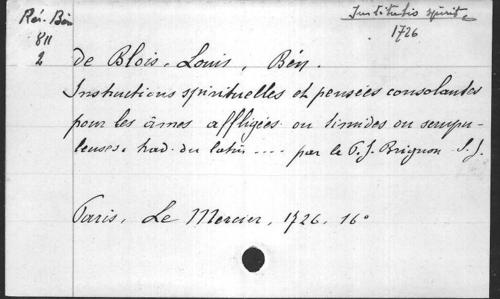 Rés. Bén
811
2
Institutio spirit.
1726
de Blois, Louis, Bén.
Instructions spirituelles et pensées consolantes
pour les âmes affligées ou timides ou scrupu-
leuses, trad. du latin .... par le P. J. Brignon S. J.
Paris, Le Mercier, 1726. 16°